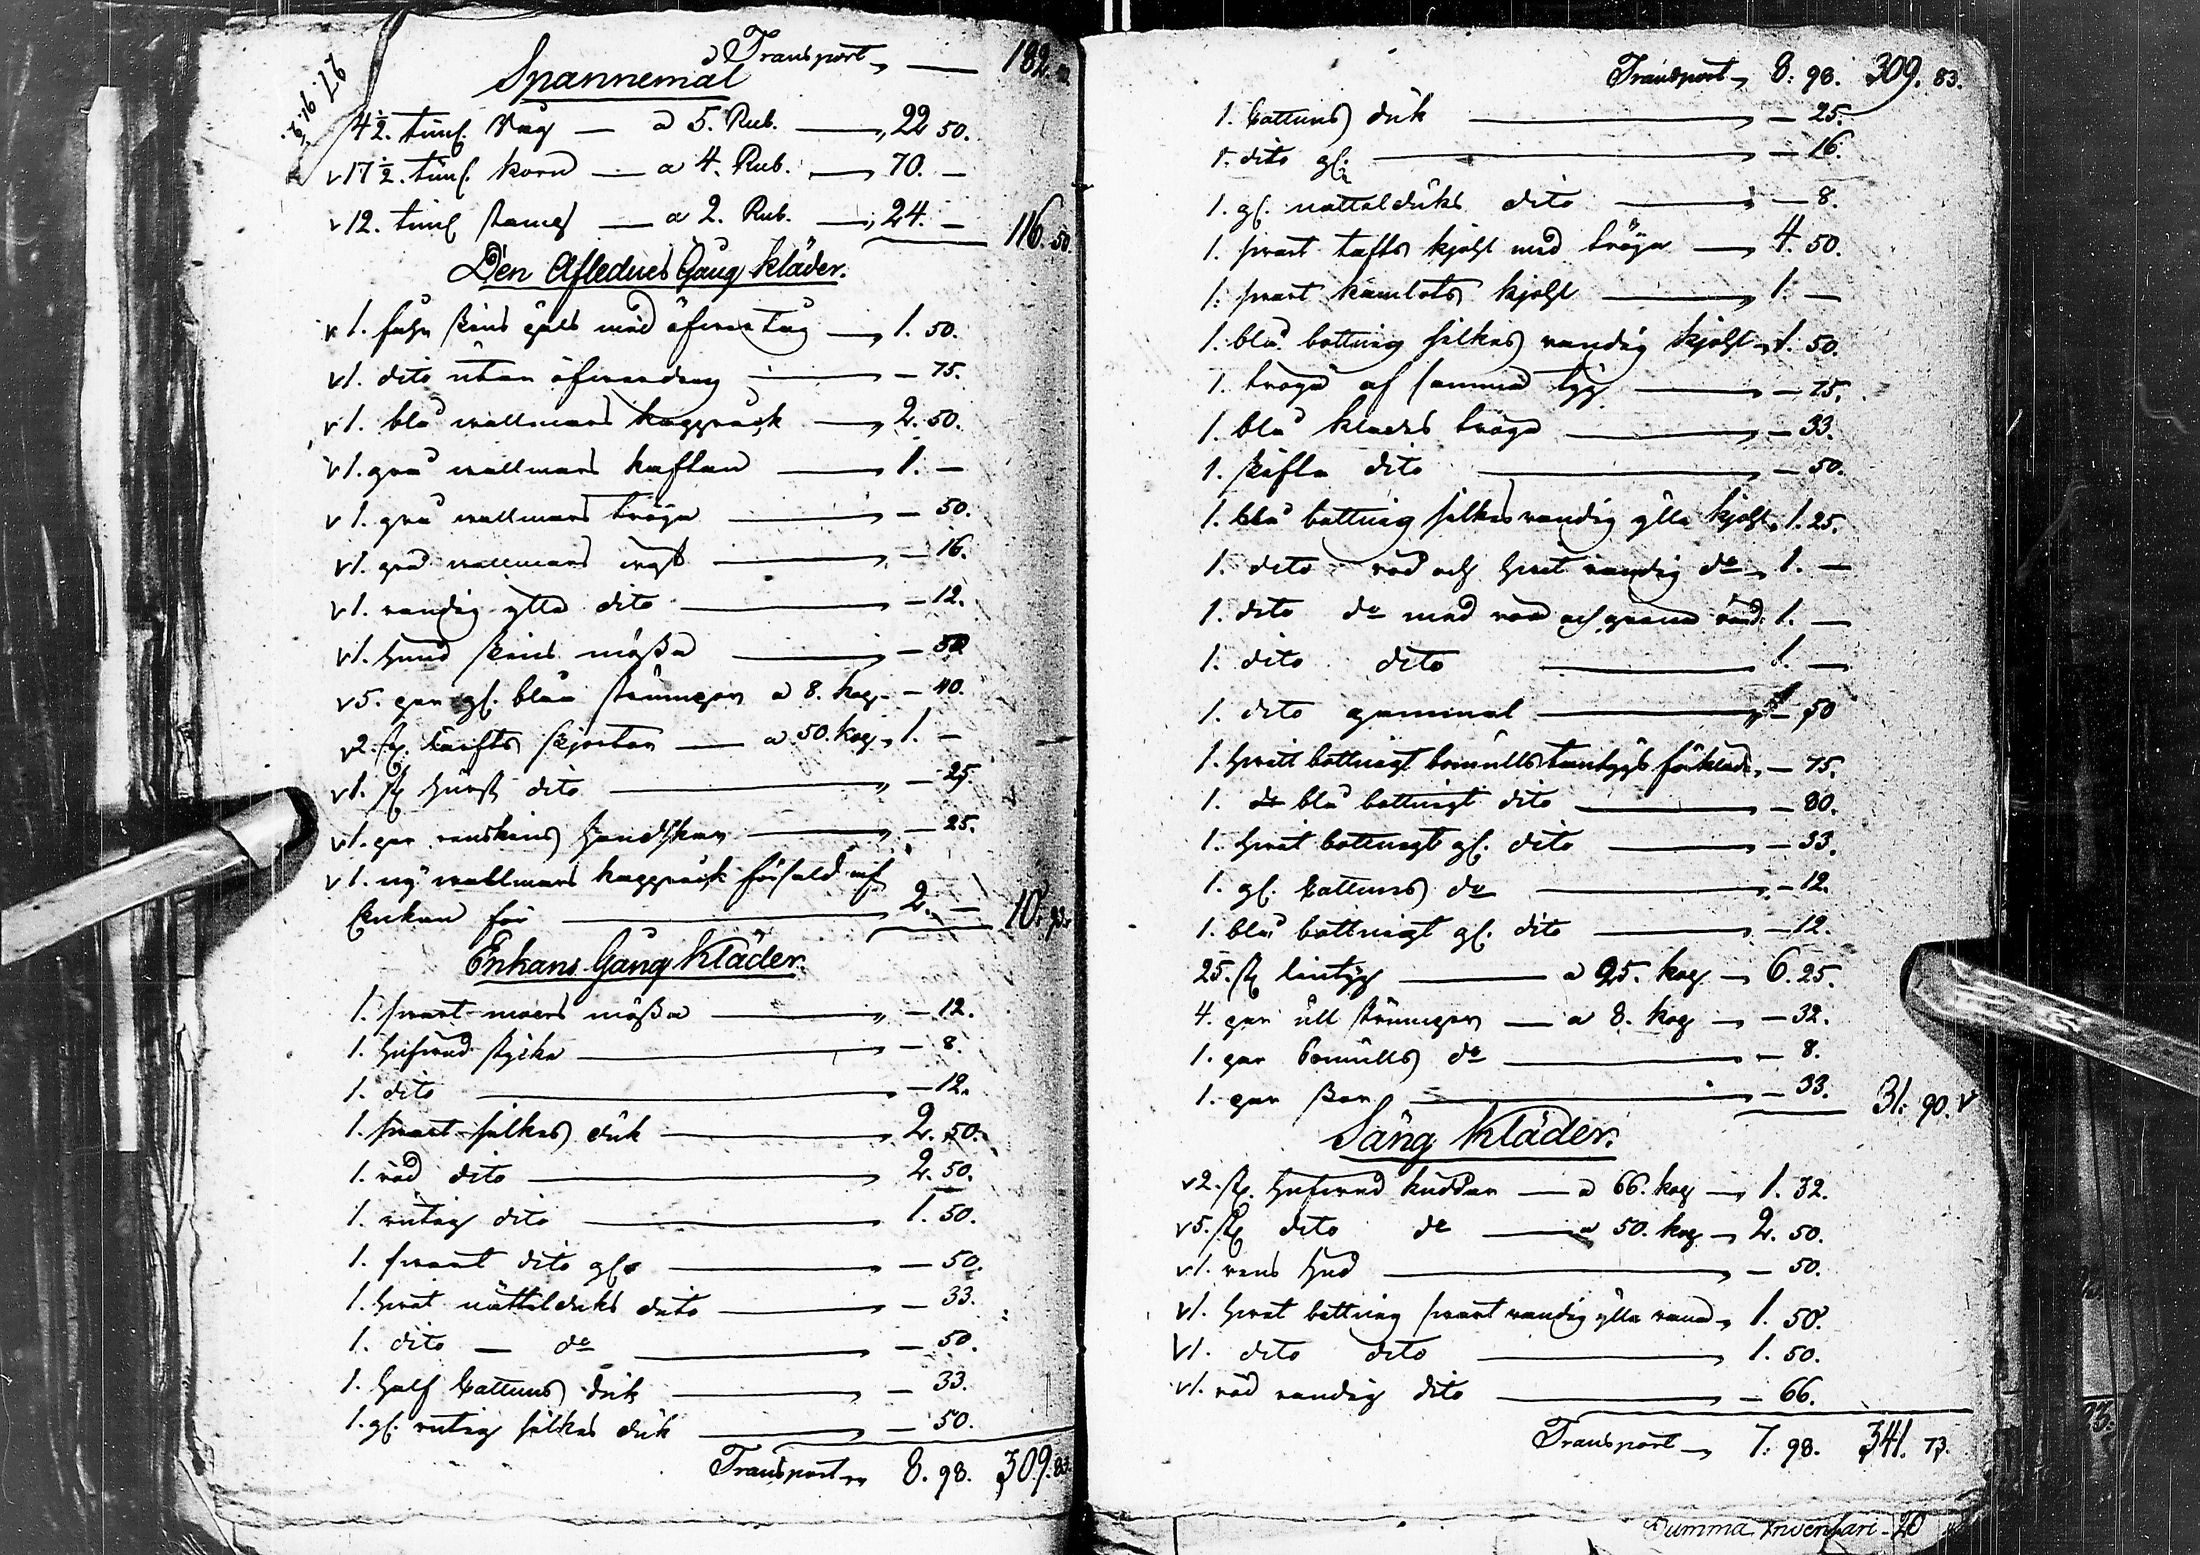 Transport 182.
Spannemål
4½. tün. Råg — a 5. Rub. — 22 50.
v 17½. tün. korn — a 4. Rub. — 70. —
v 12. tün — a 2. Rub. — 24. — 116. 50
Den Aflednes Gång kläder.
v 1. skins päls med öfwertüg — 1. 50.
v 1. dito ütan — 75.
v 1. blå wallmars kappråck — 2. 50.
v 1. grå wallmars kaftan — 1. —
v 1. grå wallmars tröya — 50.
v 1. grå wallmars wäst — 16.
v 1. randig ylle dito — 12.
v 1. hund skins mössa — 50
v 5. par gl. blåa strümpor a 8. kop — 40.
v 2. st. lärfts skjortor — a 50. kop 1. —
v 1. st dito — 25
v 1. par renskins handskar — 25.
v 1. ny wallmars kappråck försåld af
Enkan för — 2. — 10.
Enkans Gång Kläder.
1. swart moers mössa — 12.
1. hufwud stycke — 8.
1. dito — 12.
1. swart silkes dük — 2. 50.
1. röd dito — 2. 50.
1. rutig dito — 1. 50.
1. swart dito gl. — 50.
1. hwit nätteldüks dito — 33.
1. dito — do — 50.
1. half Cattuns dük — 33.
1. gl. rutig silkes dük — 50.
Transport 8. 98. 309. 83.
Transport 8. 98. 309. 83.
1. Cattuns dük — 25.
1. dito gl. — 16.
1. gl. nätteldüks dito — 8.
1. swart tafts kjohl med tröya — 4. 50.
1. swart kamlots kjohl — 1. —
1. blå bottnig silkes randig kjohl 1. 50.
1. tröya af samma tyg — 75.
1. blå klädes tröya — 33.
1. dito — 50.
1. blå bottnig silkes randig ylle kjohl 1. 25.
1. dito röd och hwit randig do 1. —
1. dito do med röd och gröna rand. 1. —
1. dito dito — 1. —
1. dito gammal — 50
1. hwitt bottnigt bomülls förkläde — 75.
1. blå bottnigt dito — 80.
1. hwit bottnigt gl. dito — 33.
1. gl. Cattuns do — 12.
1. blå bottnigt gl. dito — 12.
25. st lintyg — a 25. kop — 6. 25.
4. par üll strümpor — a 8. kop — 32.
1. par bomülls do — 8.
1. par skor — 33. 31. 90. v
Säng Kläder.
v 2. st. hufwud kuddar — a 66. kop — 1. 32.
v 5. st dito do — a 50. kop — 2. 50.
v 1. rens hud — 50.
v 1. hwit bottnig swart randig ylle 1. 50.
v 1. dito dito — 1. 50.
v 1. röd randig dito — 66.
Transport 7. 98. 341. 73.
Summa Inventari